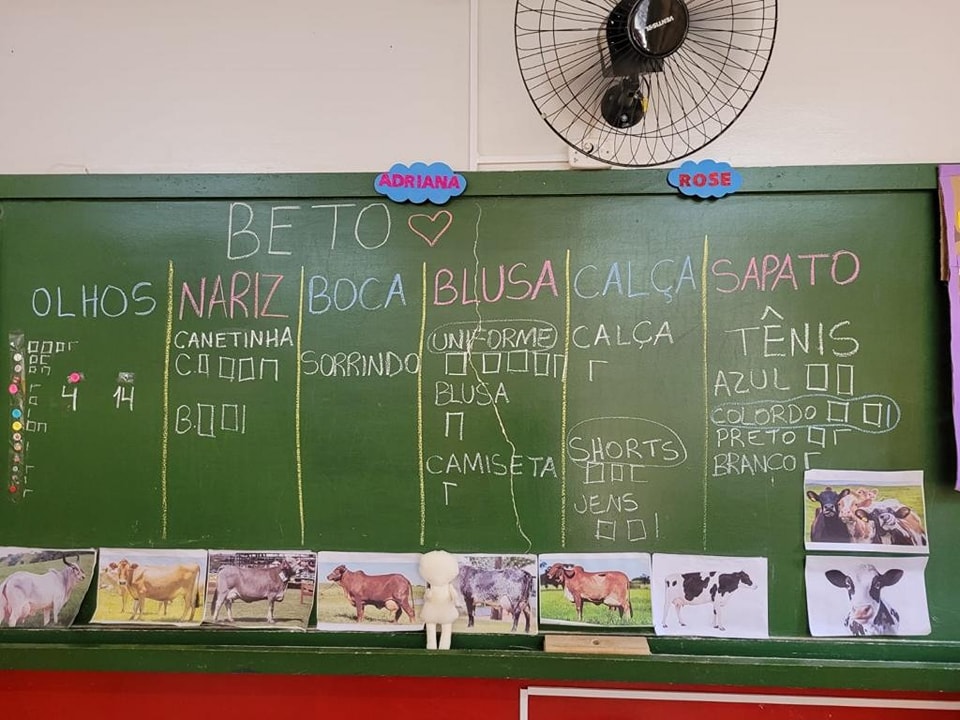 VENTISOL
ADRIANA
ROSE
BETO
OLHOS
4 14
NARIZ
CANETINHA
C.
B.
BOCA
SORRINDO
BLUSA
UNIFORME
BLUSA
CAMISETA
CALÇA
CALÇA
SHORTS
JENS
SAPATO
TÊNIS
AZUL
COLORDO
PRETO
BRANCO